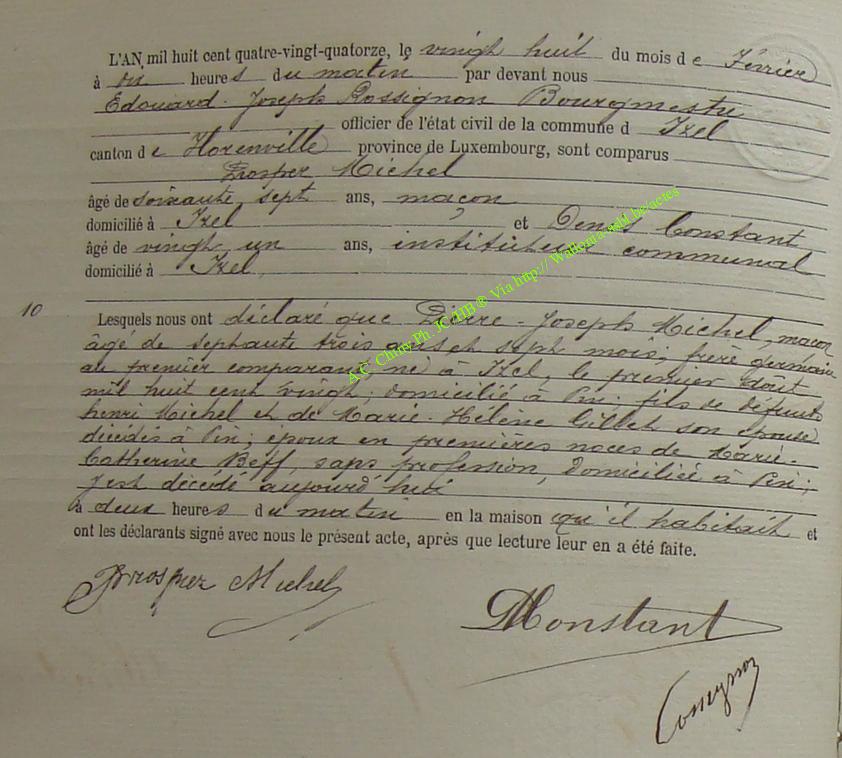 L'AN mil huit cent quatre-vingt-quatorze, le vingt huit du mois de Février
à onze heures du matin par devant nous
Edouard-Joseph Rossignon Bourgmestre
officier de l'état civil de la commune d Izel
canton de Florenville province de Luxembourg, sont comparus
Prosper Michel
âgé de soixante sept ans, maçon
domicilié à Izel et Denis Constant
âgé de vingt un ans, instituteur communal
domicilié à Izel,
10
Lesquels nous ont déclaré que Pierre-Joseph Michel, maçon
âgé de septante trois ans et sept mois, frère germain
au premier comparant né à Izel, le premier août
mil huit cent vingt, domicilié à Pin; fils de défunts
henri Michel et de Marie-Hélène Gillet son épouse
décédés à Pin; époux en premières noces de Marie-
Catherine Beff, sans profession, domiciliée à Pin;
est décédé aujourd'hui
à deux heures du matin en la maison qu'il habitait et
ont les déclarants signé avec nous le présent acte, après que lecture leur en a été faite.
Prosper Michel
DConstant
A.C. Chiny Ph. JC/HB® Via http://Wallonia.asbl.be/actes